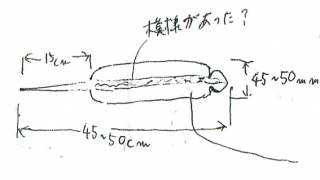 模様があった？
15cm
45~50mm
45~50cm